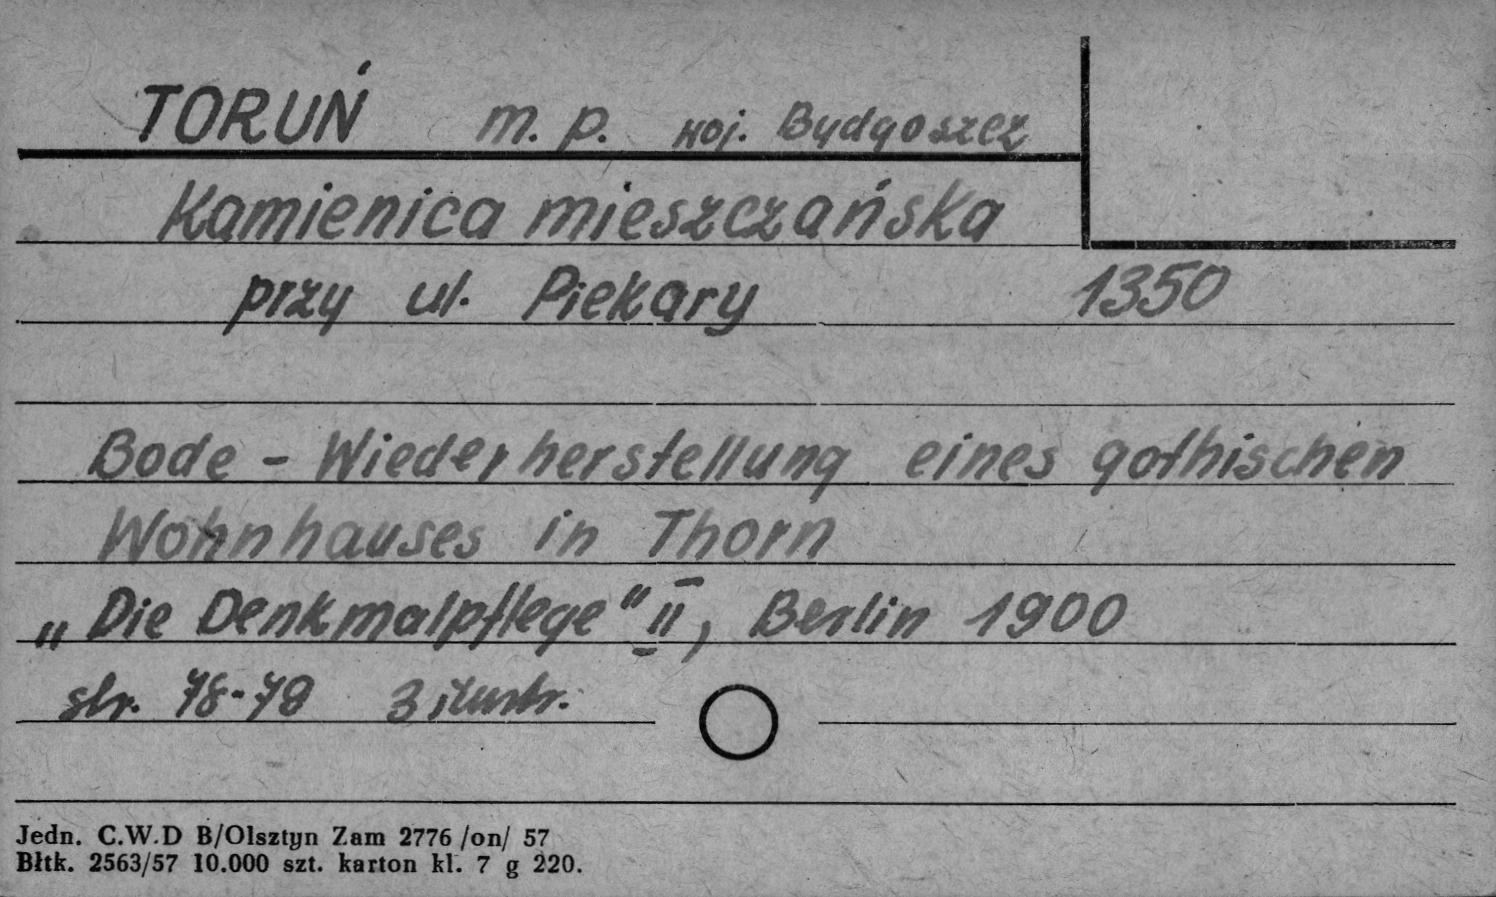 TORUŃ m. p. woj. Bydgoszcz
Kamienica mieszczańska
przy ul. Piekary 1350
Bode - Wiederherstellung eines gothischen
Wohnhauses in Thorn
„Die Denkmalpflege" II, Berlin 1900
str. 78-79 3 ilustr.
Jedn. C.W.D B/Olsztyn Zam 2776 /on/ 57
Błtk. 2563/57 10.000 szt. karton kl. 7 g 220.